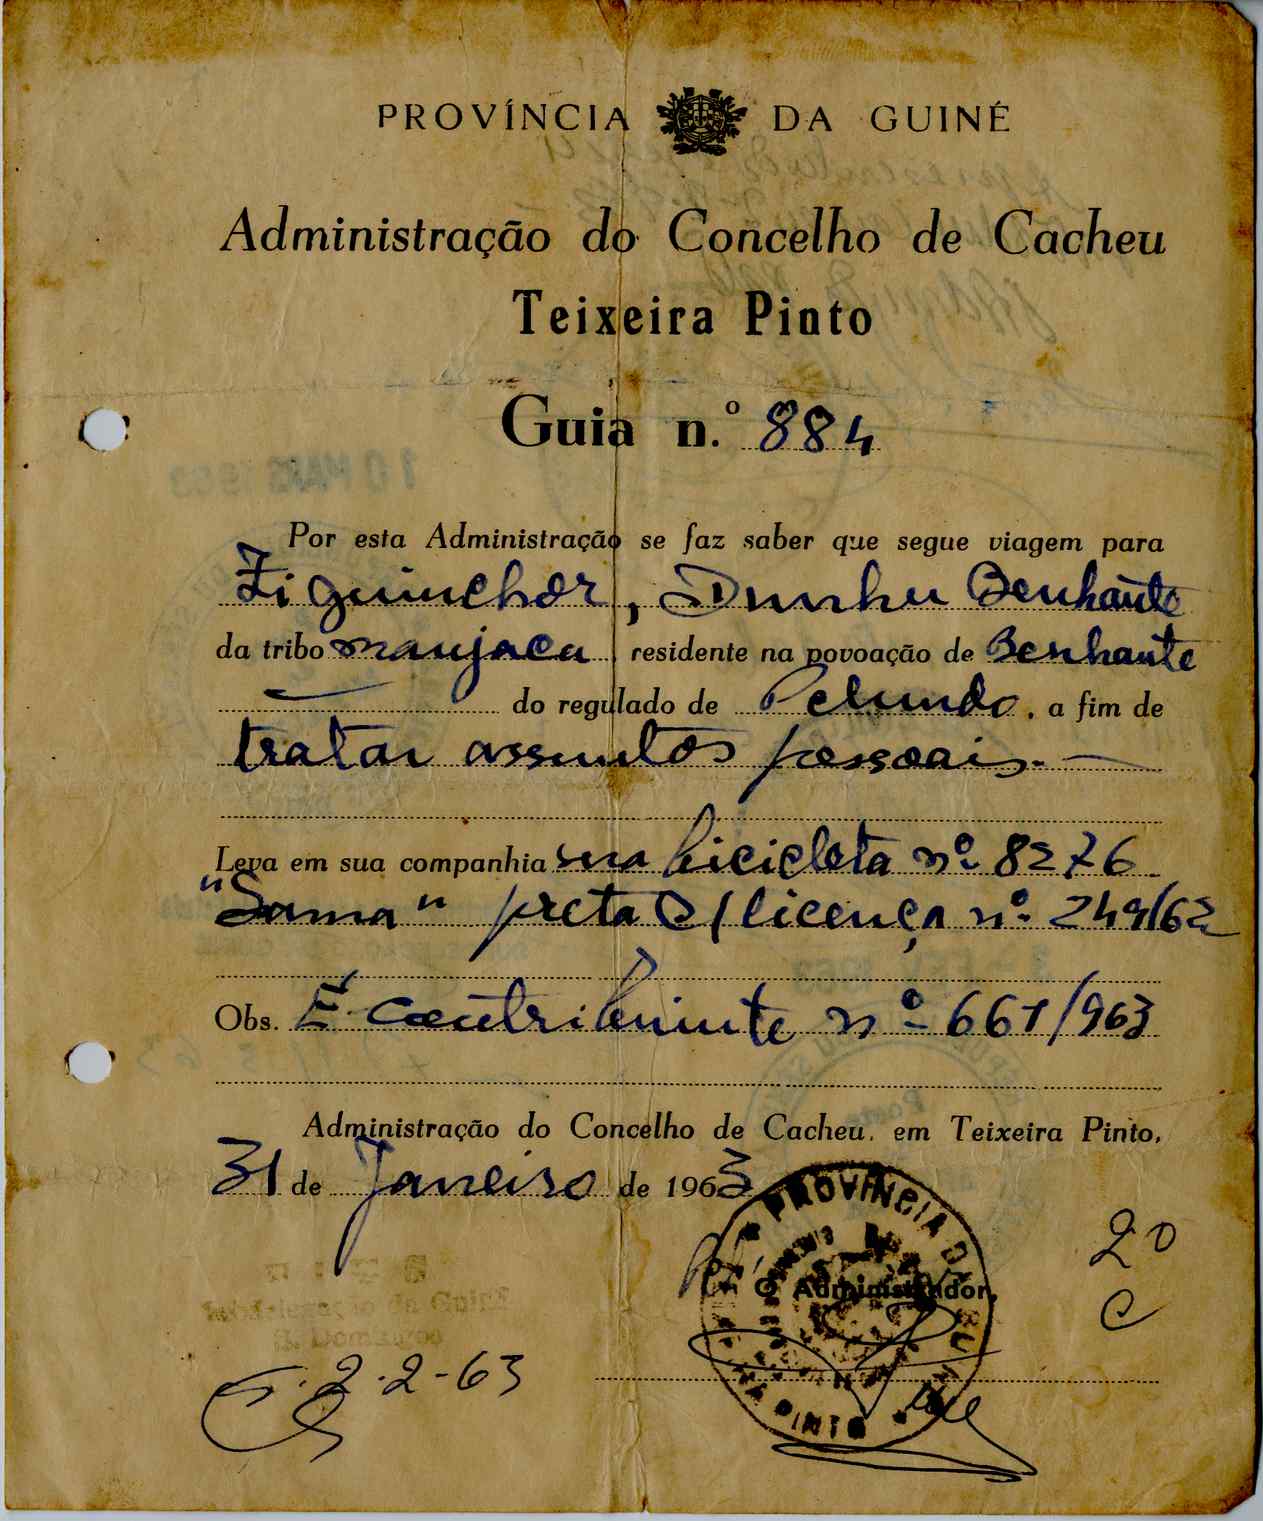 PROVÍNCIA DA GUINÉ
Administração do Concelho de Cacheu
Teixeira Pinto
Guia n.º 884
Por esta Administração se faz saber que segue viagem para
Ziguinchor, Dunhu Benhante
da tribo manjaca residente na povoação de Benhante
do regulado de Pelundo, a fim de
tratar assuntos pessoais.
Leva em sua companhia sua bicicleta nº 8276
"Sama" preta c/licença nº 249/62
Obs. É contribuinte nº 661/963
Administração do Concelho de Cacheu, em Teixeira Pinto,
31 de Janeiro de 1963
PROVÍNCIA DA
O Administrador,
20
C
PINTO
Subdelegação da Guiné
S. Domingos
2-2-63